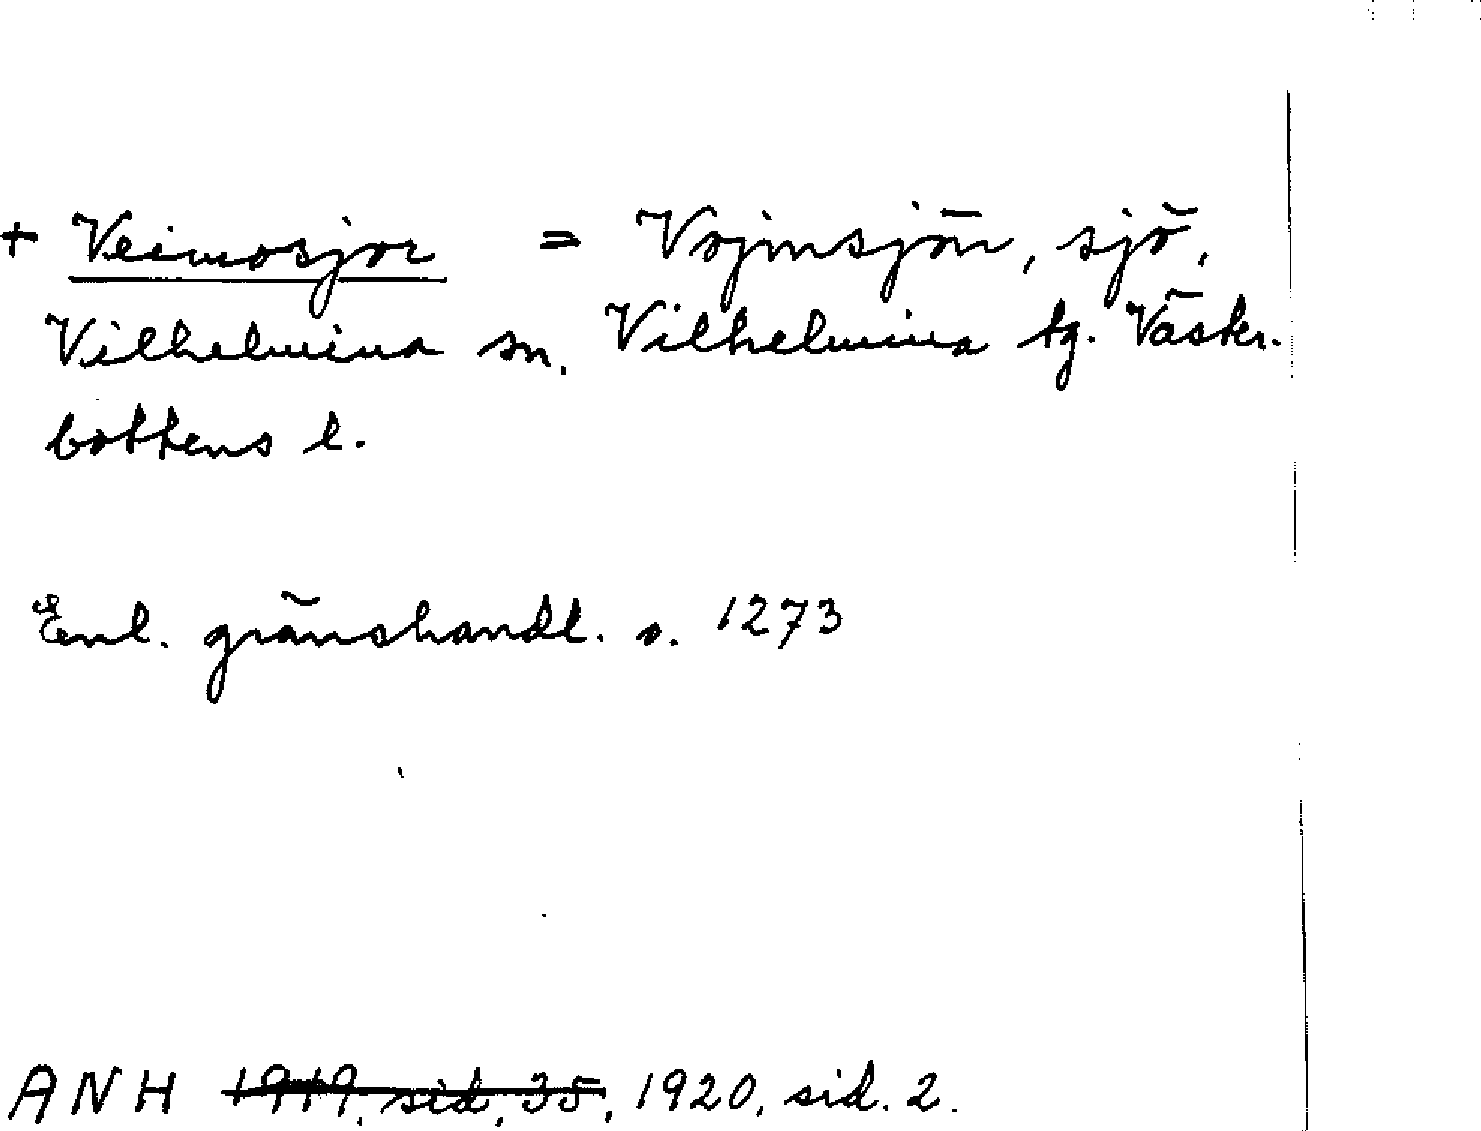 + Veimosjor = Vojmsjön, sjö,
Vilhelmina sn. Vilhelmina tg. Väster-
bottens l.
Enl. gränshandl. s. 1273
ANH 1919, sid. 35, 1920, sid. 2.